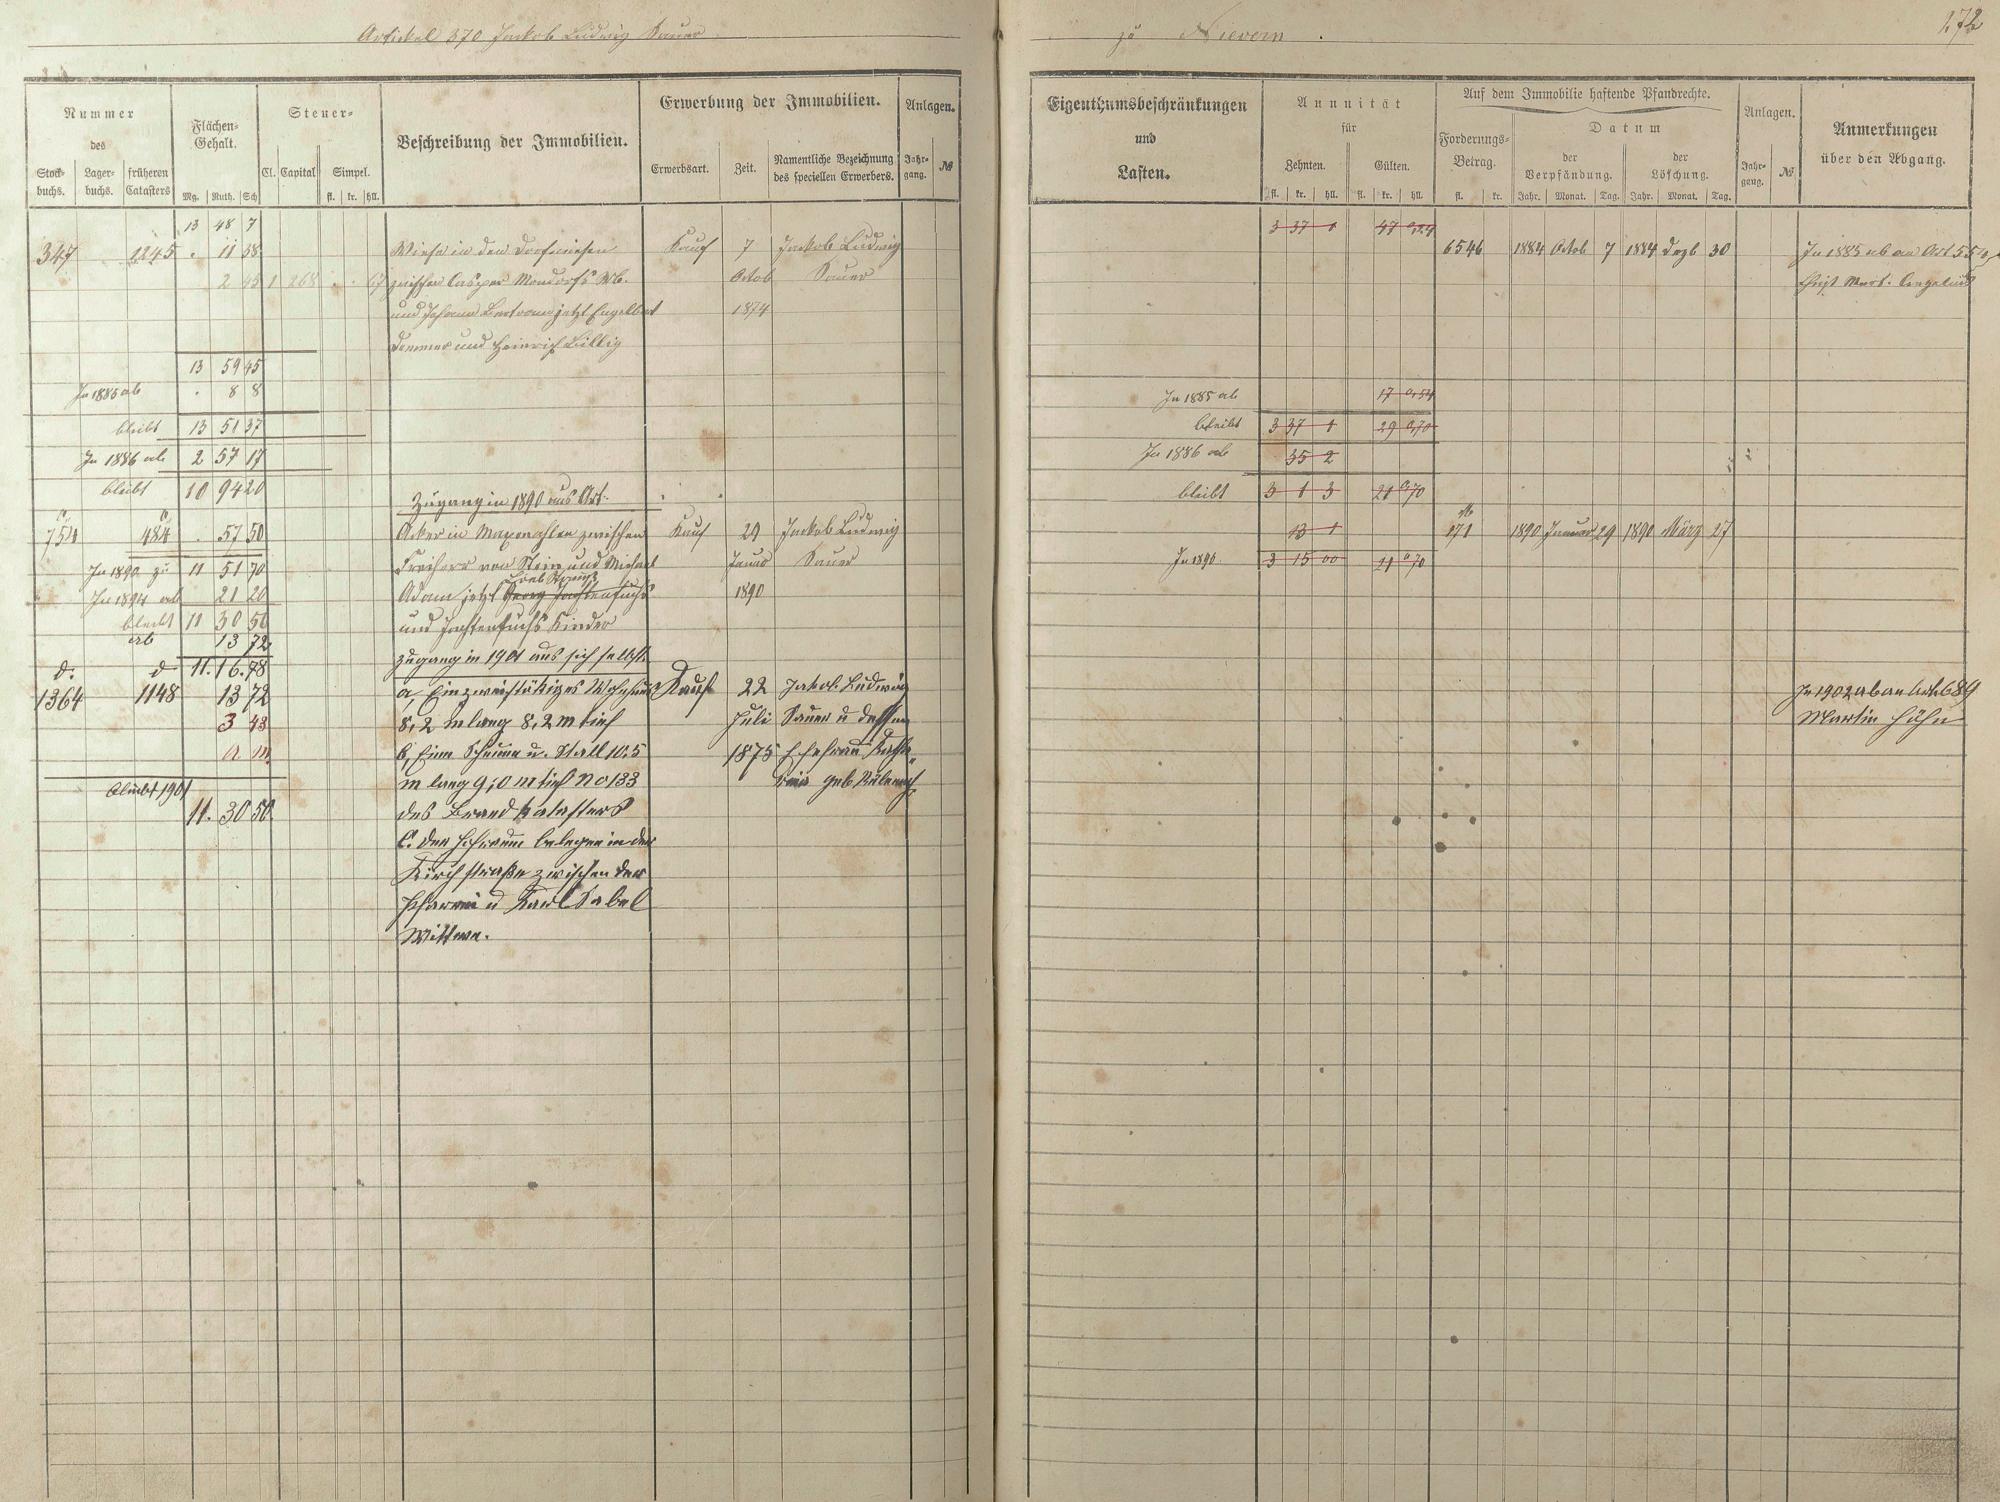 Artikel 370 Jackob Ludwig Sauer
zu Nievern.
172
Nummer
des
Stock-
buchs.
Lager-
buchs.
früheren
Catasters
Flächen-
Gehalt.
Mg. Ruth. Sch
Steuer-
Cl. Capital Simpel.
fl. kr. hll.
Beschreibung der Immobilien.
Erwerbung der Immobilien.
Erwerbsart. Zeit.
Namentliche Bezeichnung
des speciellen Erwerbers.
Anlagen.
Jahr-
gang.
№
Eigenthumsbeschränkungen
und
Lasten.
Annuität
für
Zehnten. Gülten.
fl. kr. hll. fl. kr. hll.
Auf dem Immobilie haftende Pfandrechte.
Forderungs-
Betrag.
fl. kr.
Datum
der
Verpfändung.
der
Löschung.
Jahr. Monat. Tag. Jahr. Monat. Tag.
Anlagen.
Jahr-
gang.
№
Anmerkungen
über den Abgang.
13 48 7
347 1245 . 11 38 Wiese in den Dorfwiesen Kauf 7 Jackob Ludwig
2 45 1 268 . . 67 zwischen Casper Mondorfs Wb. Octob Sauer
und Johann Bertram jetzt Engelbert 1874
Demmer und Heinrich Billig
13 59 45
In 1885 ab . 8 8
bleibt 13 51 37
In 1886 ab 2 57 17
bleibt 10 94 20
Zugang in 1890 aus Art.
754 484 . 57 50 Acker in zwischen Kauf 29 Jackob Ludwig
In 1890 zu 11 51 70 Freiherr von Stein und Michael Januar Sauer
In 1894 ab 21 20 Adam jetzt Georg 1890
bleibt 11 30 50 und Kinder
ab 13 72
Zugang in 1901 aus sich selbst
d. d. 11. 16. 78
1364 1148 13 72 a, Ein zweistökiges Wohnhaus Kauf 22 Jakob Ludwig
3 43 8,2 m lang 8,2 m tief Juli Sauer u dessen
a m b, Eine Scheune u. Stall 10,5 1875 Ehefrau Katha-
m lang 9,0 m tief No 133 rina geb.
bleibt 1901
11. 30 50 des Brand katasters
C. der Hofraum belegen in der
Kirchstraße zwischen der
Pfarrei u Karl Sabel
Wittwe.
3 37 1 47
6546 1884 Octob 7 1884 Dezb 30 In 1885 ab an Art
In 1885 ab 17
bleibt 3 37 1 29
In 1886 ab 35 2
bleibt 3 1 3 21 70
13 1 171 1890 Januar 29 1890 März 27
In 1890. 3 15 00 21 70
In 1902 ab an Art. 689
Martin Höhn